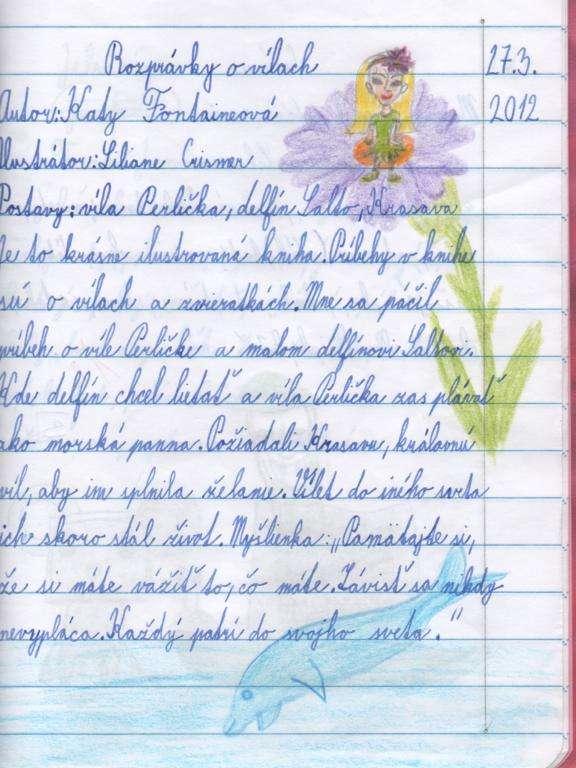 Rozprávky o vílach 27.3.
Autor: Katy Fontaineová 2012
Ilustrátor: Liliane Crismer
Postavy: víla Perlička, delfín Salto, Krasava
Je to krásne ilustrovaná kniha. Príbehy v knihe
sú o vílach a zvieratkách. Mne sa páčil
príbeh o víle Perličke a malom delfínovi Saltovi.
Kde delfín chcel lietať a víla Perlička zas plávať
ako morská panna. Požiadali Krasavu, kráľovnú
víl, aby im splnila želanie. Výlet do iného sveta
ich skoro stál život. Myšlienka: „Pamätajte si,
že si máte vážiť to, čo máte. Závisť sa nikdy
nevypláca. Každý patrí do svojho sveta."